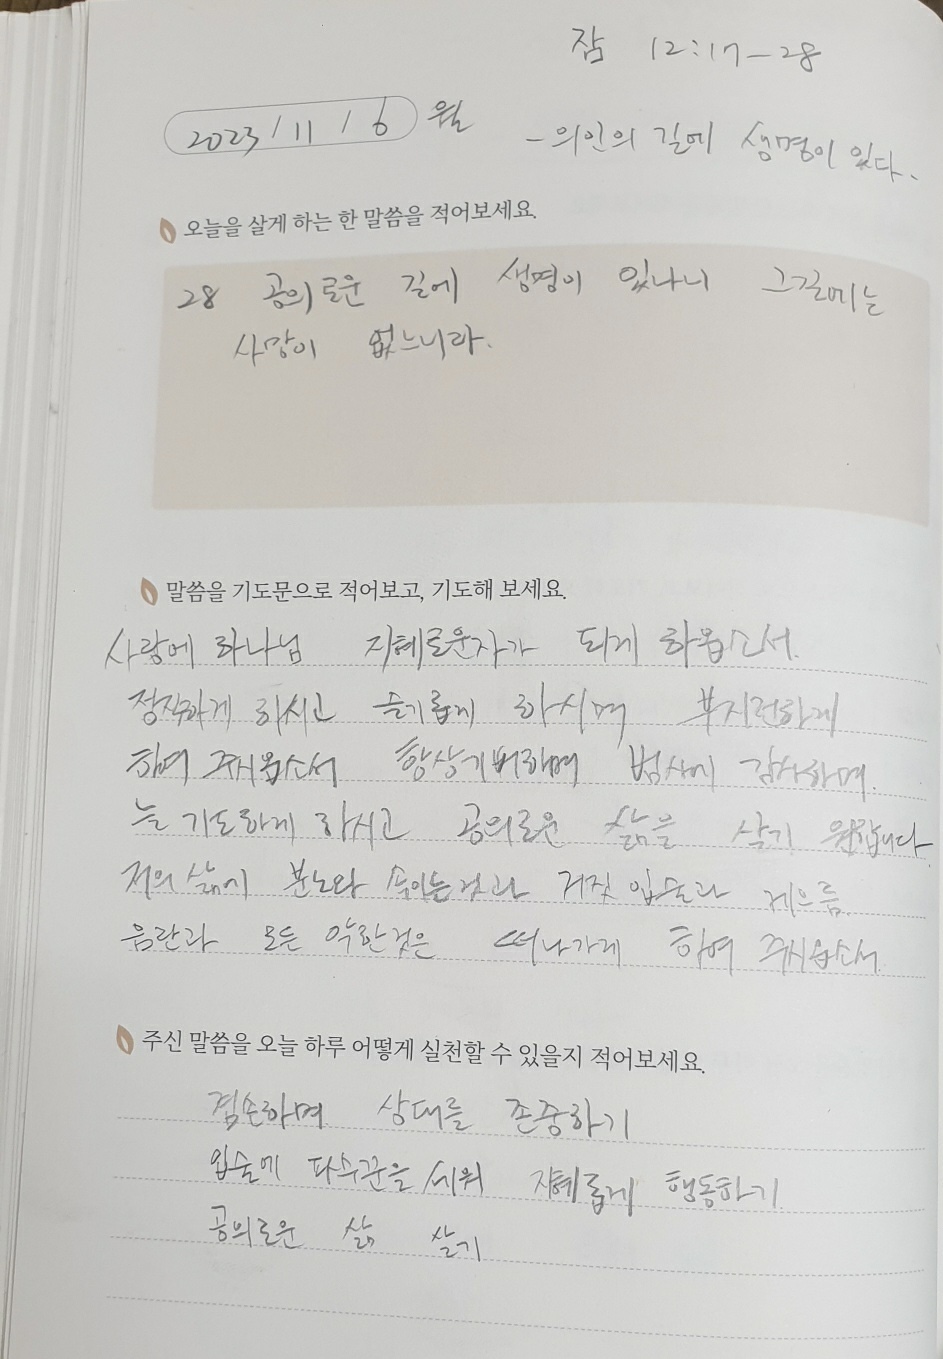 잠 12:17-28
2023/11/6 월
-의인의 길에 생명이 있다.
오늘을 살게 하는 한 말씀을 적어보세요.
28 공의로운 길에 생명이 있나니 그길에는
사망이 없느니라.
말씀을 기도문으로 적어보고, 기도해 보세요.
사랑에 하나님 지혜로운자가 되게 하옵소서.
정직하게 하시고 슬기롭게 하시며 부지런하게
하여 주시옵소서 항상기뻐하며 범사에 감사하며.
늘 기도하게 하시고 공의로운 삶을 살기 원합니다.
저의 삶에 분노와 속이는것과 거짓 입술과 게으름.
음란과 모든 악한것은 떠나가게 하여 주시옵소서.
주신 말씀을 오늘 하루 어떻게 실천할 수 있을지 적어보세요.
겸손하며 상대를 존중하기
입술에 파수꾼을 세워 지혜롭게 행동하기
공의로운 삶 살기